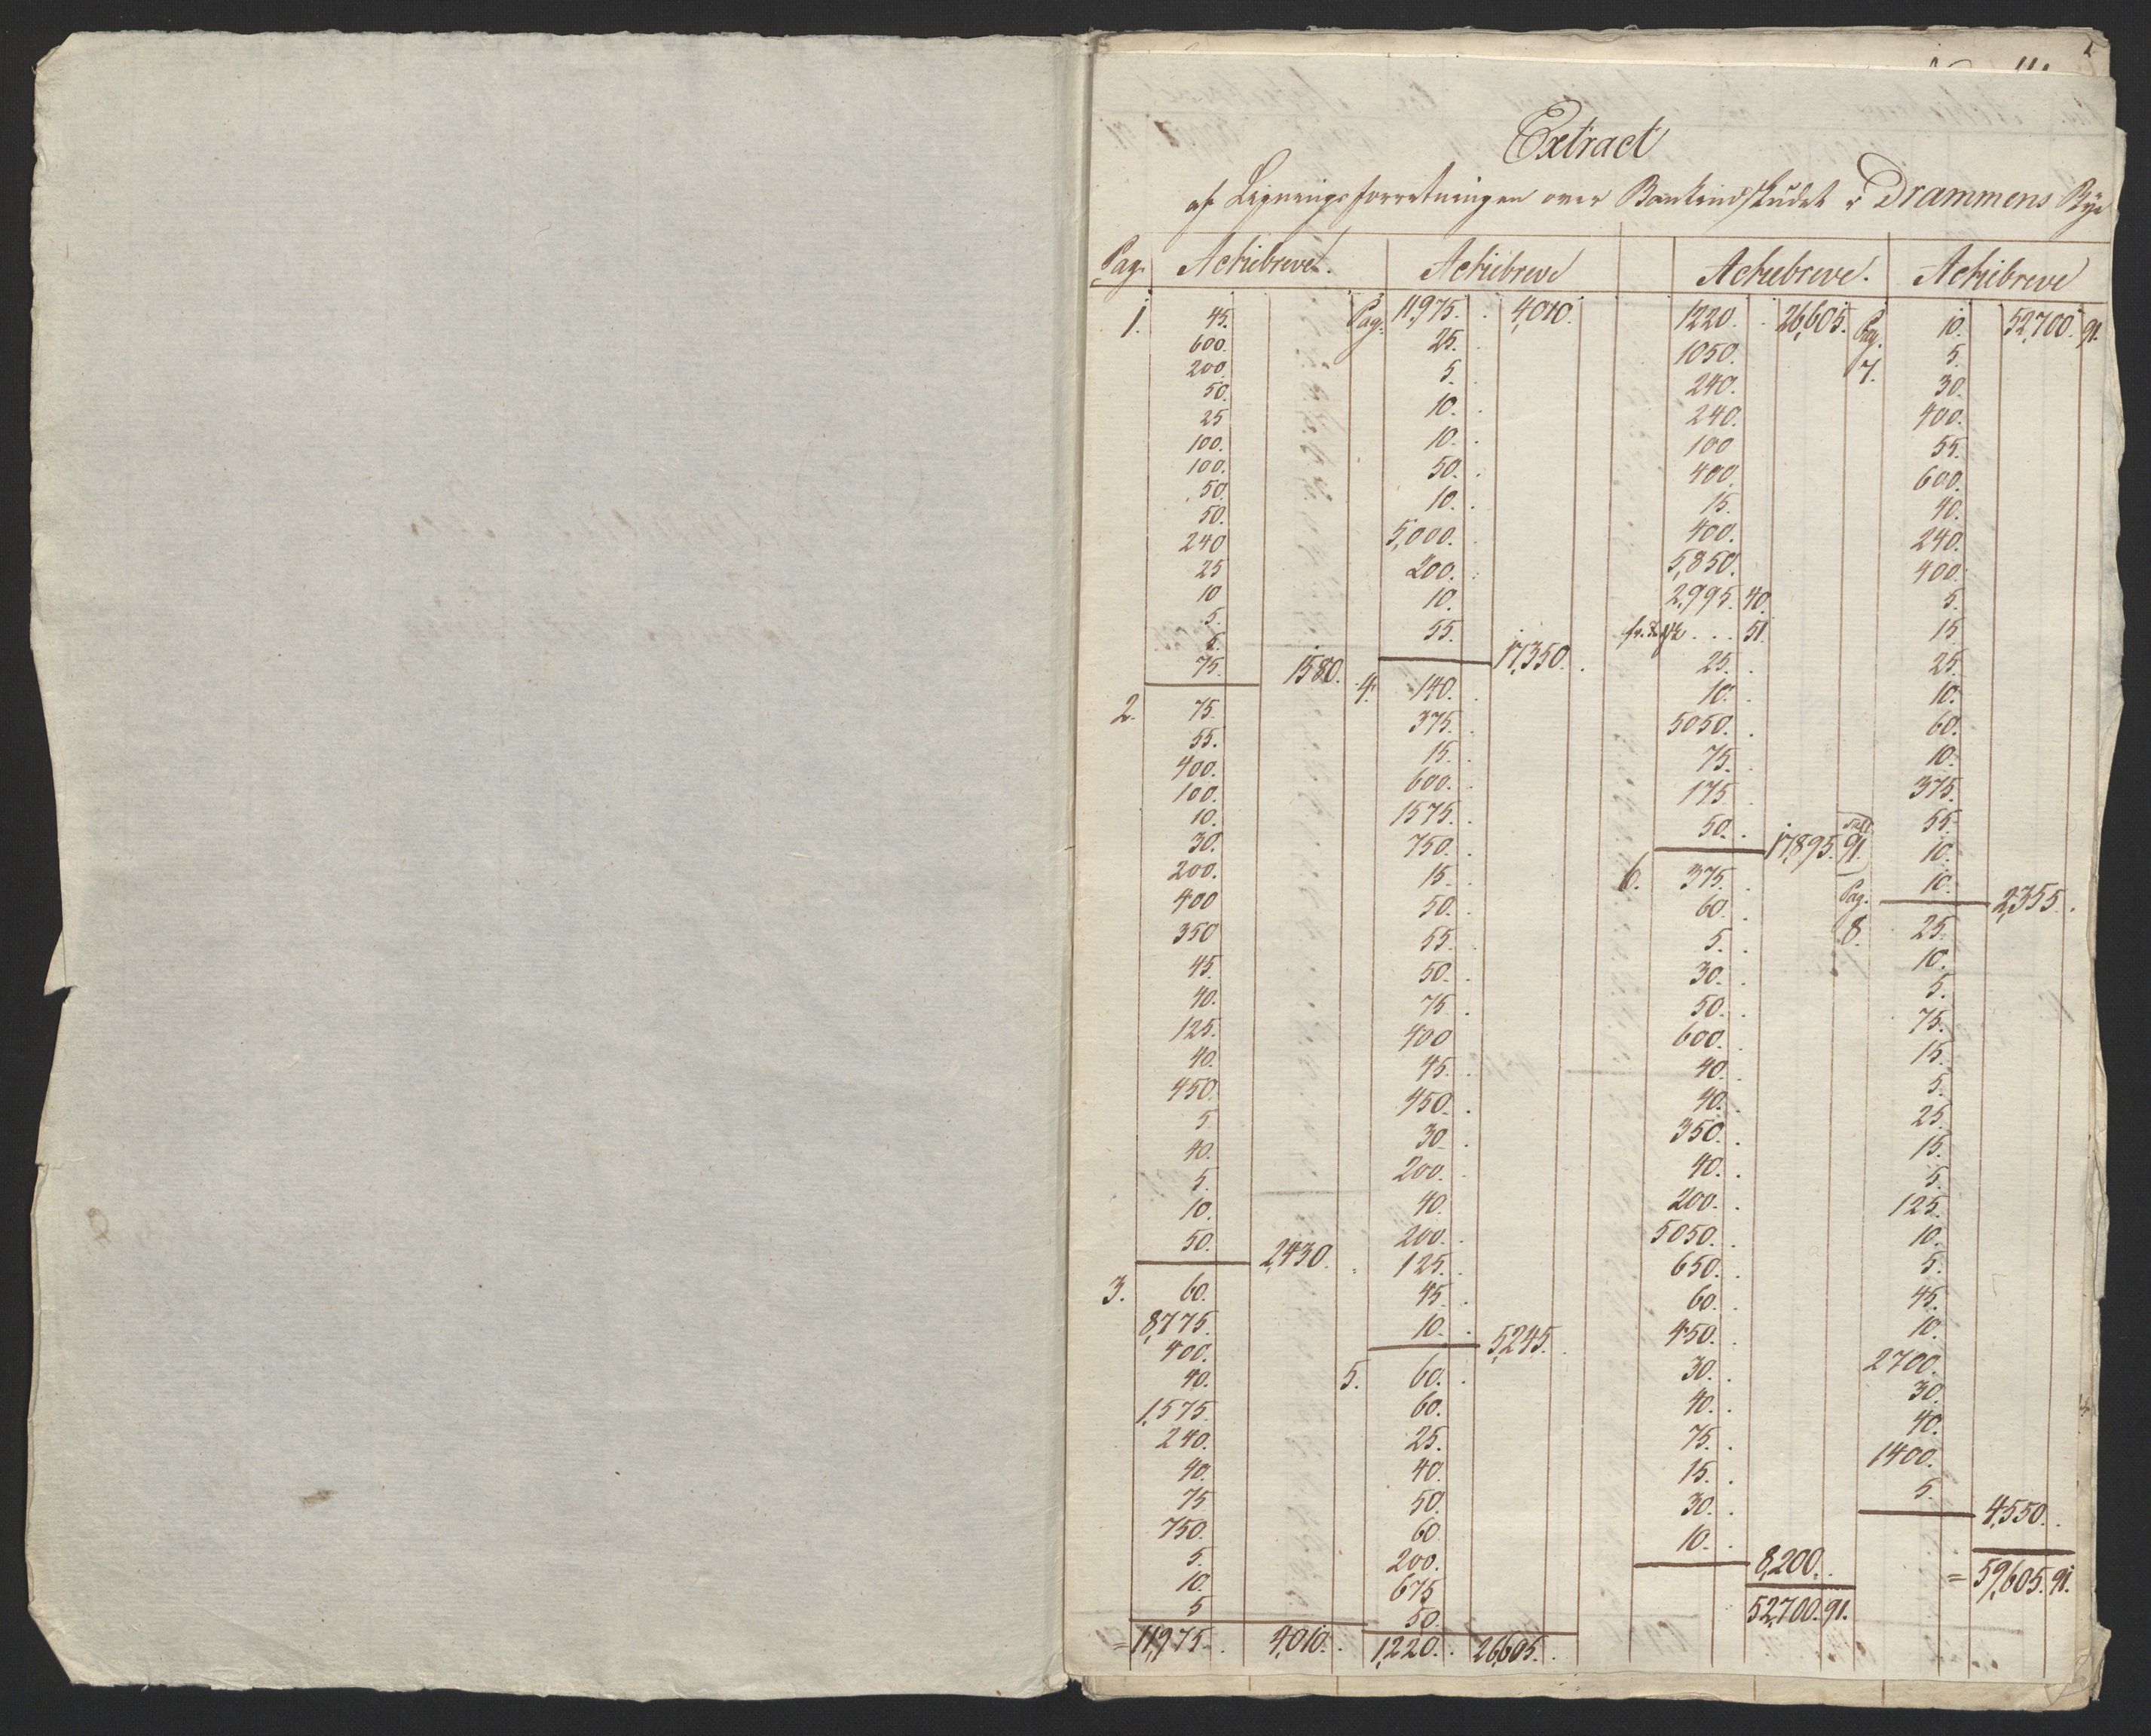 Extract
af Ligningsforretningen over Bankindskudet i Drammens Bye
Pag. Actiebreve.
1. 45.
600.
200.
50.
25
100.
100.
50.
50.
240
25
10
5.
5.
75. 1580.
2. 75.
55.
400.
100.
10.
30.
200.
400
350
45.
40.
125.
40.
450.
5
40.
5.
10.
50. 2,430.
3. 60.
8,775.
400.
40.
1,575.
240.
40.
75
750.
5.
10.
5
= 11,975. 4,010.
Actiebreve
Pag. 11,975. 4,010.
25.
5.
10.
10.
50.
10.
5,000.
200.
10.
55. 17,350.
4. 140.
375.
15.
600.
1575.
750.
15.
50.
55.
50.
75.
400
45.
450.
30.
200.
40.
200.
125.
45.
10. 5,245.
5. 60.
60.
25.
40.
50.
60
200.
675
50.
1,220. 26,605.
Actiebreve.
1220. 26,605.
1050.
240.
240.
100
400.
15.
400.
5,850.
2,995. 40.
51.
25.
10.
5050.
75.
175
50. 17,895. 91.
6. 375.
60.
5.
30.
50.
600.
40.
40.
350.
40.
200.
5050.
650.
60.
450.
30.
40.
75.
15.
30.
10. 8,200.
52,700. 91.
Actiebreve
Pag. 10. 52,700. 91.
7. 5.
30.
400.
55.
600.
40.
240.
400.
5.
15
25.
10.
60.
10.
375.
55.
10.
10. 2,355.
Pag.
8. 25.
10.
5.
75.
15.
5.
25.
15.
5.
125.
10.
5.
45.
10.
2700.
30.
40.
1400.
5. 4,550.
= 59,605. 91.